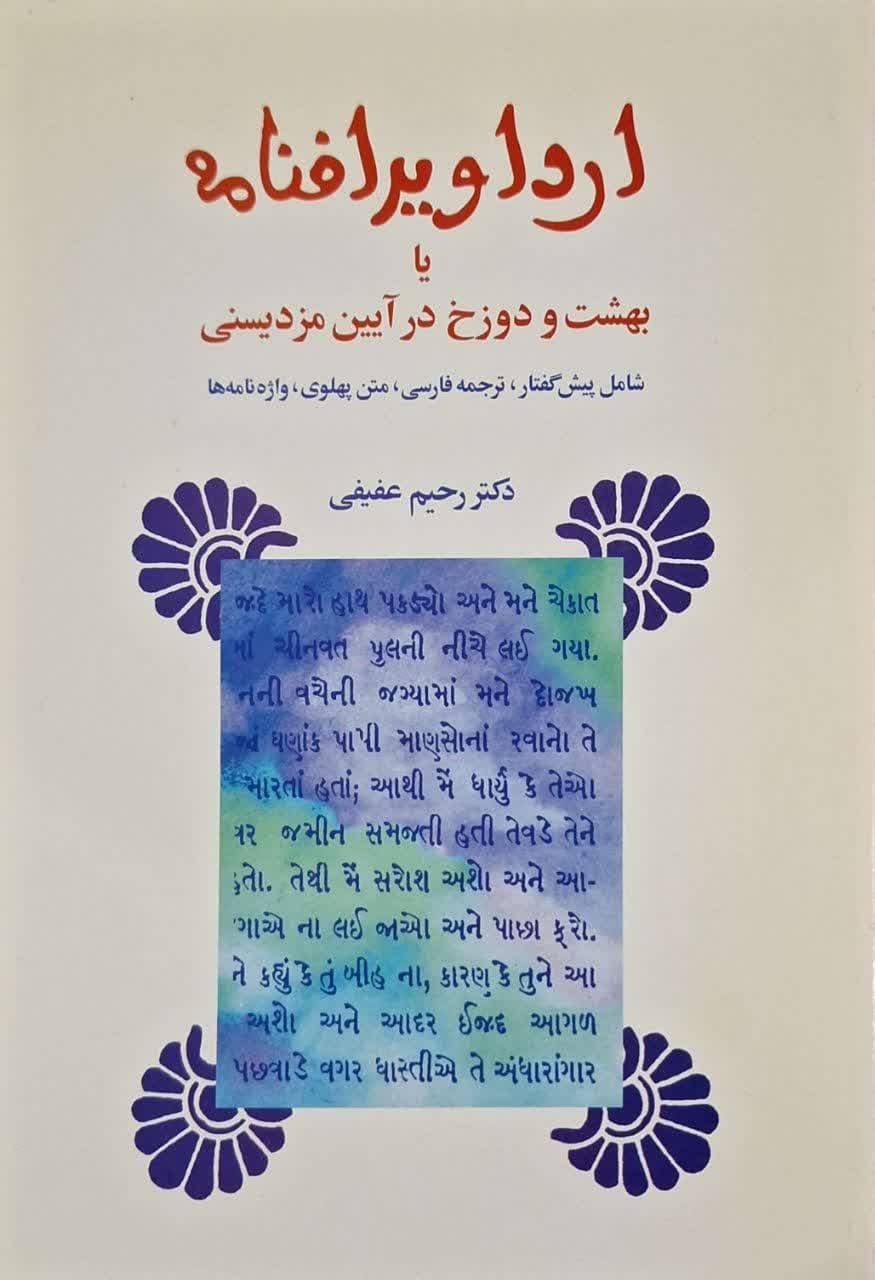 ارداویرافنامه
یا
بهشت و دوزخ در آیین مزدیسنی
شامل پیش‌گفتار، ترجمه فارسی، متن پهلوی، واژه‌نامه‌ها
دکتر رحیم عفیفی
જદે મારો હાથ પકડ્યો અને મને ચેકાત
માં ચીનવત પુલની નીચે લઈ ગયા.
નની વચેની જગ્યામાં મને દોજખ
ઘણાંક પાપી માણસોનાં રવાનો તે
મારતાં હતાં; આથી મેં ધાર્યું કે તેઓ
જમીન સમજતી હતી તેવડે તેને
તેથી મેં સરોશ અશો અને આ-
ગાએ ના લઈ જાઓ અને પાછા ફરો.
ને કહ્યું કે તું બીહ ના, કારણ કે તુને આ
અશો અને આદર ઈજદ આગળ
પછવાડે વગર ધાસ્તીએ તે અંધારાંગાર